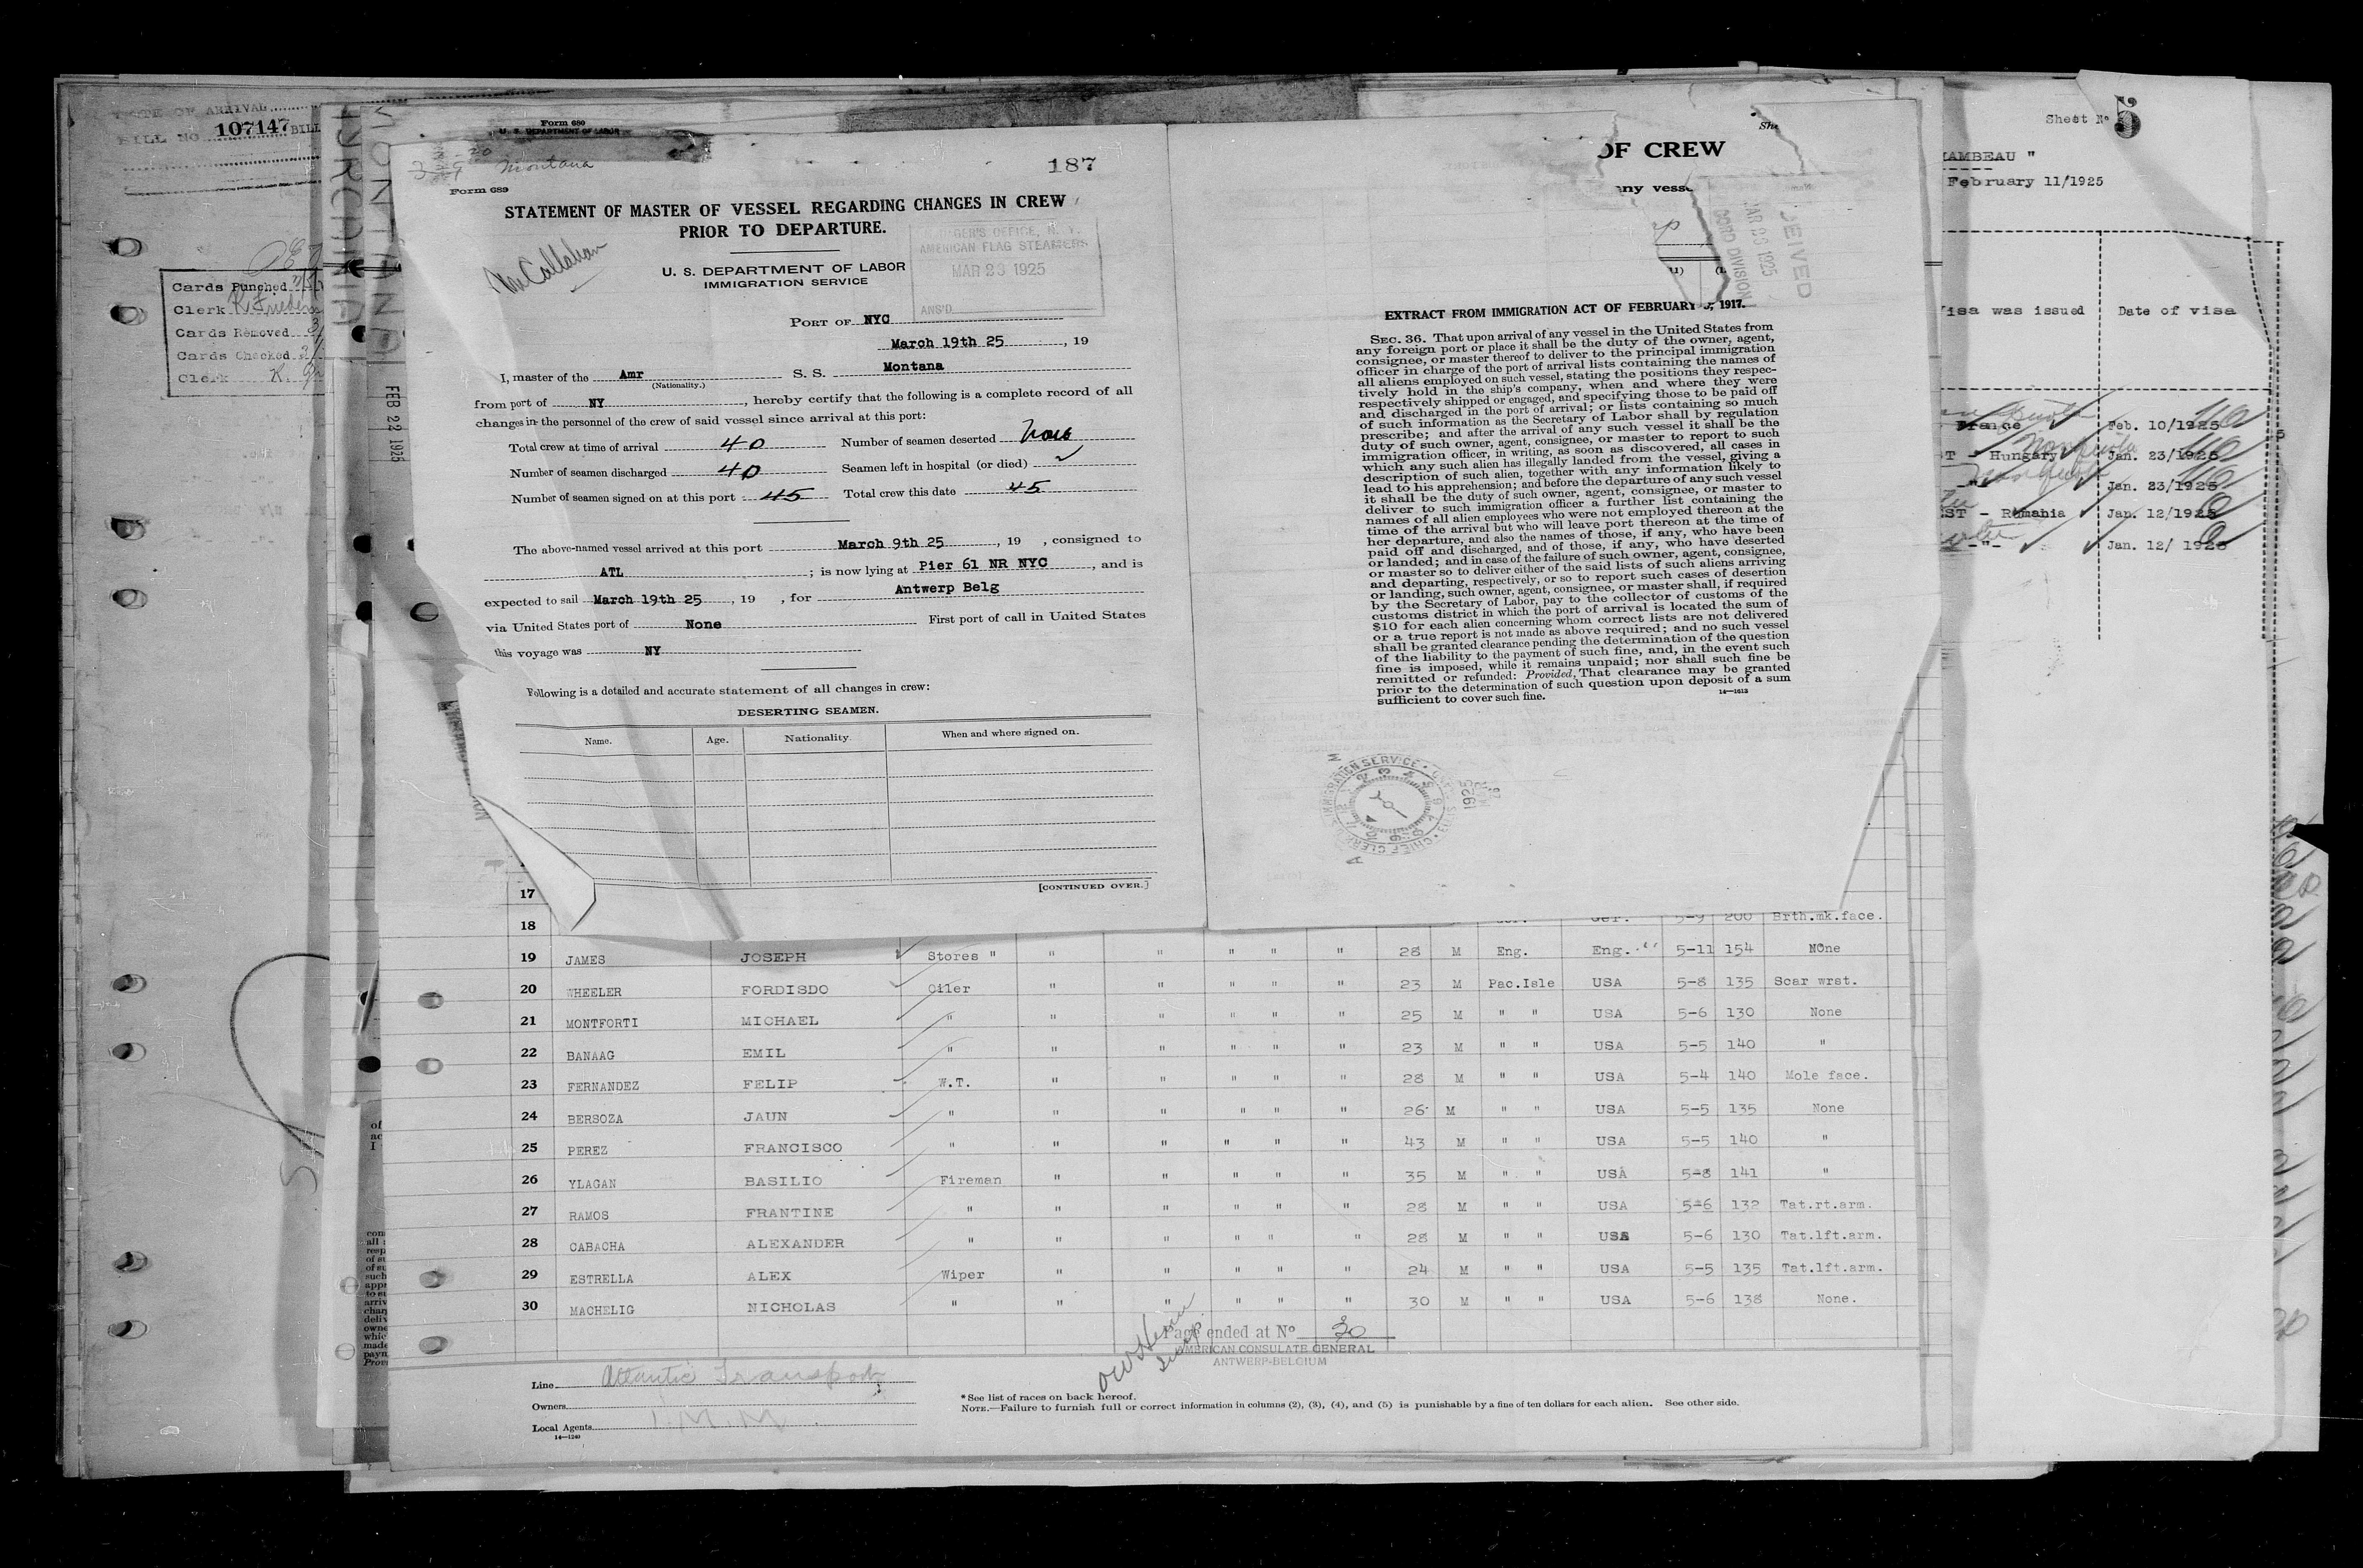 107147
Cards Punched
Clerk
Cards Removed
Cards Checked
Clerk
MONTANA
FEB 22 1925
Form 680
U. S. DEPARTMENT OF LABOR
Montana
187
Form 689
STATEMENT OF MASTER OF VESSEL REGARDING CHANGES IN CREW
PRIOR TO DEPARTURE.
McCallahan
U. S. DEPARTMENT OF LABOR
IMMIGRATION SERVICE
OFFICE, N. Y.
AMERICAN FLAG STEAMERS
MAR 23 1925
ANS'D
PORT OF NYC
March 19th 25, 19
I, master of the Amr S. S. Montana
(Nationality.)
from port of NY, hereby certify that the following is a complete record of all
changes in the personnel of the crew of said vessel since arrival at this port:
Total crew at time of arrival 40 Number of seamen deserted None
Number of seamen discharged 40 Seamen left in hospital (or died)
Number of seamen signed on at this port 45 Total crew this date 45
The above-named vessel arrived at this port March 9th 25, 19 , consigned to
ATL; is now lying at Pier 61 NR NYC, and is
expected to sail March 19th 25, 19 , for Antwerp Belg
via United States port of None First port of call in United States
this voyage was NY
Following is a detailed and accurate statement of all changes in crew:
DESERTING SEAMEN.
Name. Age. Nationality. When and where signed on.
[CONTINUED OVER.]
OF CREW
EXTRACT FROM IMMIGRATION ACT OF FEBRUARY 5, 1917.
SEC. 36. That upon arrival of any vessel in the United States from
any foreign port or place it shall be the duty of the owner, agent,
consignee, or master thereof to deliver to the principal immigration
officer in charge of the port of arrival lists containing the names of
all aliens employed on such vessel, stating the positions they respec-
tively hold in the ship's company, when and where they were
respectively shipped or engaged, and specifying those to be paid off
and discharged in the port of arrival; or lists containing so much
of such information as the Secretary of Labor shall by regulation
prescribe; and after the arrival of any such vessel it shall be the
duty of such owner, agent, consignee, or master to report to such
immigration officer, in writing, as soon as discovered, all cases in
which any such alien has illegally landed from the vessel, giving a
description of such alien, together with any information likely to
lead to his apprehension; and before the departure of any such vessel
it shall be the duty of such owner, agent, consignee, or master to
deliver to such immigration officer a further list containing the
names of all alien employees who were not employed thereon at the
time of the arrival but who will leave port thereon at the time of
her departure, and also the names of those, if any, who have been
paid off and discharged, and of those, if any, who have deserted
or landed; and in case of the failure of such owner, agent, consignee,
or master so to deliver either of the said lists of such aliens arriving
and departing, respectively, or so to report such cases of desertion
or landing, such owner, agent, consignee, or master shall, if required
by the Secretary of Labor, pay to the collector of customs of the
customs district in which the port of arrival is located the sum of
$10 for each alien concerning whom correct lists are not delivered
or a true report is not made as above required; and no such vessel
shall be granted clearance pending the determination of the question
of the liability to the payment of such fine, and, in the event such
fine is imposed, while it remains unpaid; nor shall such fine be
remitted or refunded: Provided, That clearance may be granted
prior to the determination of such question upon deposit of a sum
sufficient to cover such fine.
14—1613
Sheet No 5
AMBEAU "
February 11/1925
isa was issued Date of visa
France Feb. 10/1925
T - Hungary Jan. 23/1925
-"- Jan. 23/1925
ST - Rumania Jan. 12/1925
-"- Jan. 12/ 1925
17
18 Ger. 5-9 200 Brth.mk.face.
19 JAMES JOSEPH Stores " " " " " " 28 M Eng. Eng. 5-11 154 NOne
20 WHEELER FORDISDO Oiler " " " " " 23 M Pac.Isle USA 5-8 135 Scar wrst.
21 MONTFORTI MICHAEL " " " " " " 25 M " " USA 5-6 130 None
22 BANAAG EMIL " " " " " " 23 M " " USA 5-5 140 "
23 FERNANDEZ FELIP W.T. " " " " " 28 M " " USA 5-4 140 Mole face.
24 BERSOZA JAUN " " " " " " 26 M " " USA 5-5 135 None
25 PEREZ FRANCISCO " " " " " " 43 M " " USA 5-5 140 "
26 YLAGAN BASILIO Fireman " " " " " 35 M " " USA 5-8 141 "
27 RAMOS FRANTINE " " " " " " 28 M " " USA 5-6 132 Tat.rt.arm.
28 CABACHA ALEXANDER " " " " " " 28 M " " USA 5-6 130 Tat.lft.arm.
29 ESTRELLA ALEX Wiper " " " " " 24 M " " USA 5-5 135 Tat.lft.arm.
30 MACHELIG NICHOLAS " " " " " " 30 M " " USA 5-6 138 None.
Page ended at No 30
AMERICAN CONSULATE GENERAL
ANTWERP-BELGIUM
Line Atlantic Transport
Owners
Local Agents I.M.M.
14—1240
*See list of races on back hereof.
NOTE.—Failure to furnish full or correct information in columns (2), (3), (4), and (5) is punishable by a fine of ten dollars for each alien. See other side.